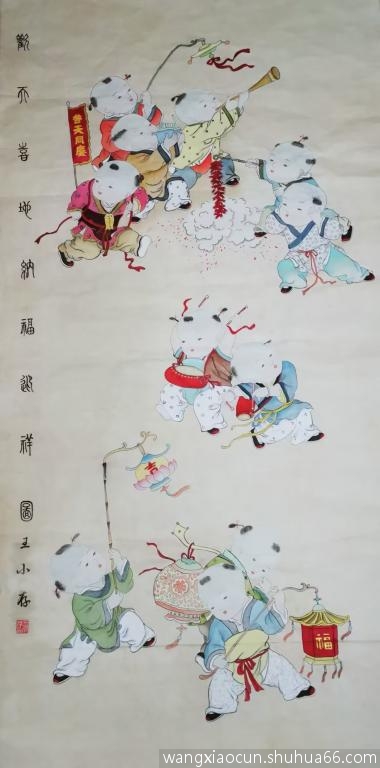 歡天喜地納福迎祥
圖
王小存
普天同慶
吉
福
wangxiaocun.shuhua66.com